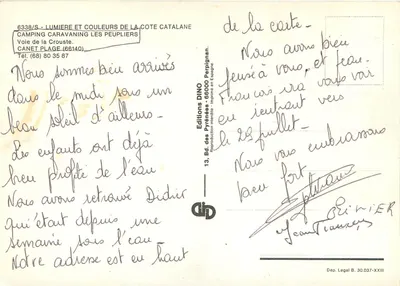 6338/S - LUMIERE ET COULEURS DE LA COTE CATALANE
CAMPING CARAVANING LES PEUPLIERS
Voie de la Crouste,
CANET PLAGE (66140)
Tél. (68) 80 35 87
Nous sommes bien arrivés
dans le midi sous un
beau soleil d'ailleurs -
Les enfants ont déjà
bien profité de l'eau
Nous avons retrouvé Didier
qui était depuis une
semaine sous l'eau -
Notre adresse est en haut
de la carte -
Nous avons bien
pensé à vous, et Jean-
François ira vous voir
en rentrant vers
le 29 juillet -
Nous vous embrassons
bien fort
Jean François
Editions DINO
13, Bd. des Pyrénées - 66000 Perpignan.
Reproduction interdite - Imprimé en Espagne
Dep. Legal B. 30.037-XXIII